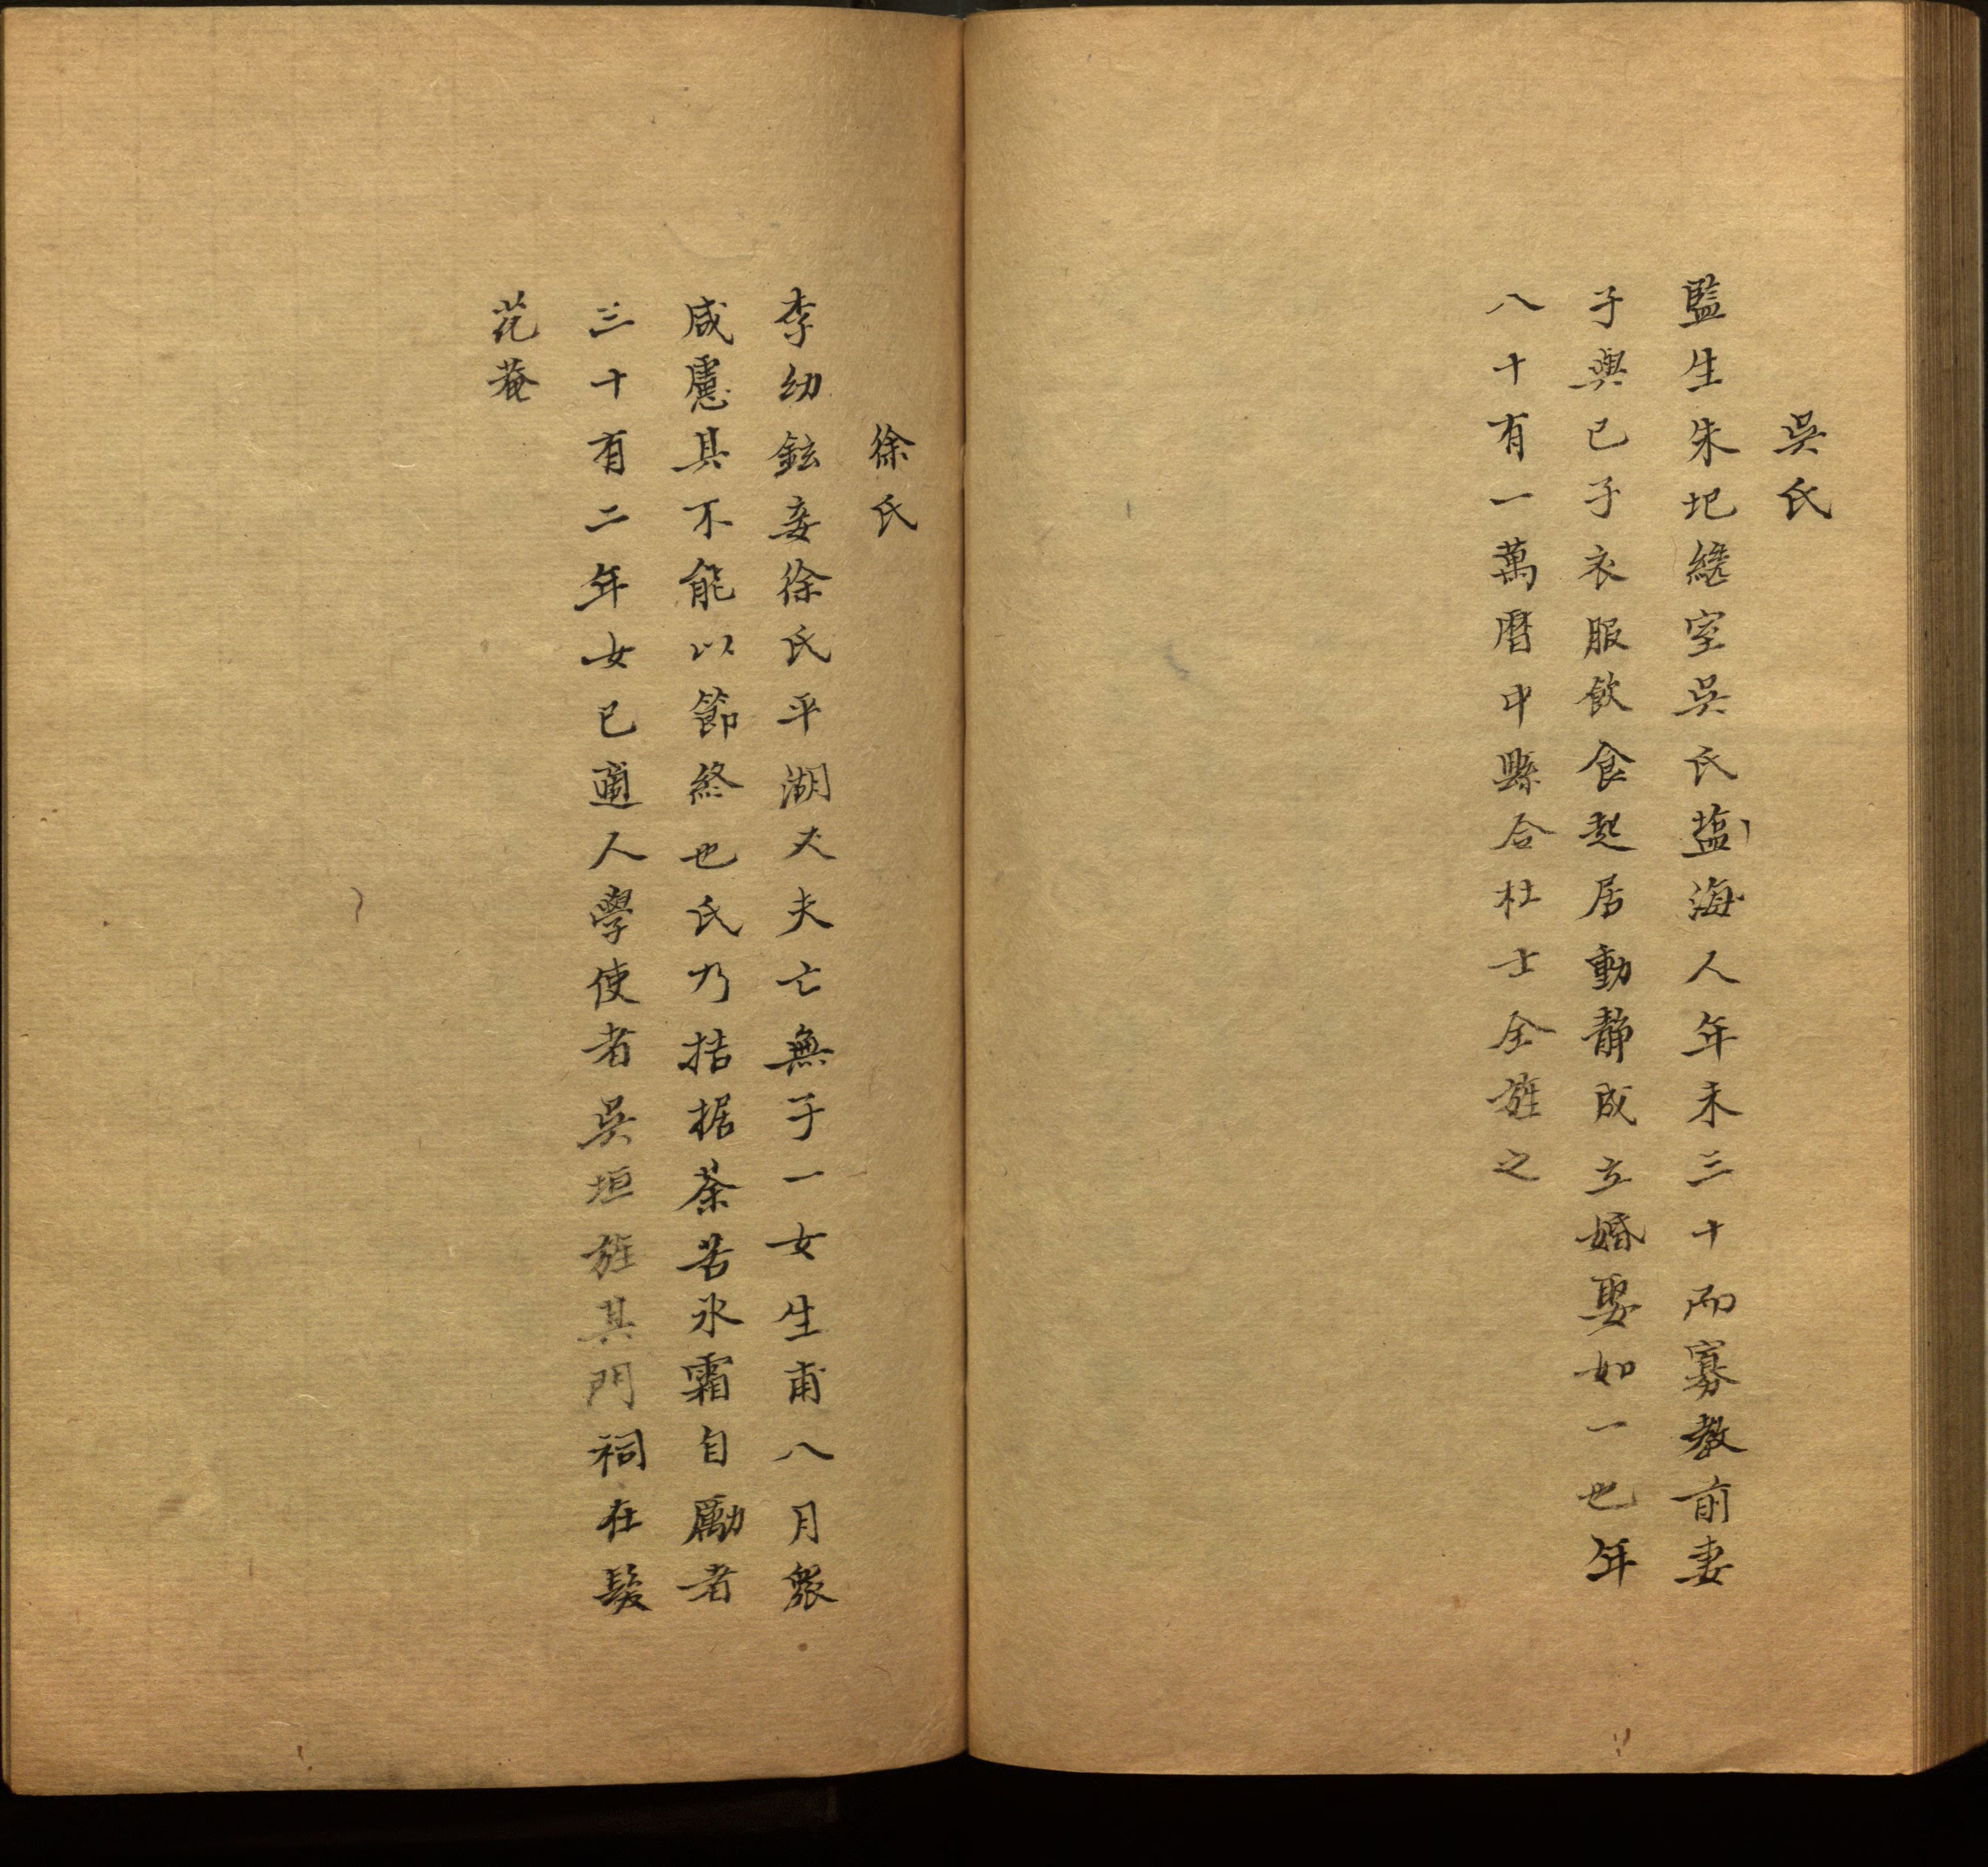 吳氏
監生朱圯繼室吳氏塩海人年未三十而寡教前妻
子與已子衣服飲食起居動靜成立婚娶如一也年
八十有一萬曆中縣令杜士全旌之
徐氏
李幼鉉妾徐氏平湖人夫亡無子一女生甫八月衆
咸慮其不能以節終也氏乃拮据荼苦氷霜自勵者
三十有二年女已適人學使者吳垣旌其門祠在髮
花菴